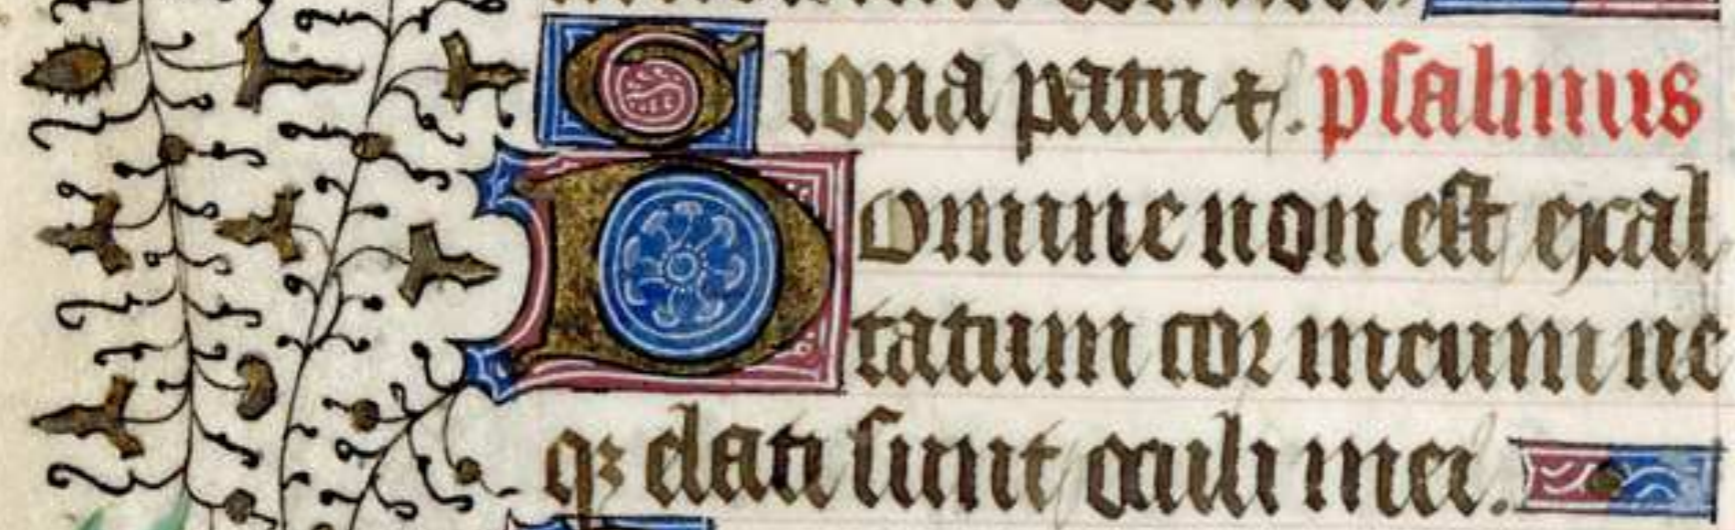 Gloria patri et. psalmus
Domine non est exal
tatum cor meum ne
qꝫ elati sunt oculi mei.